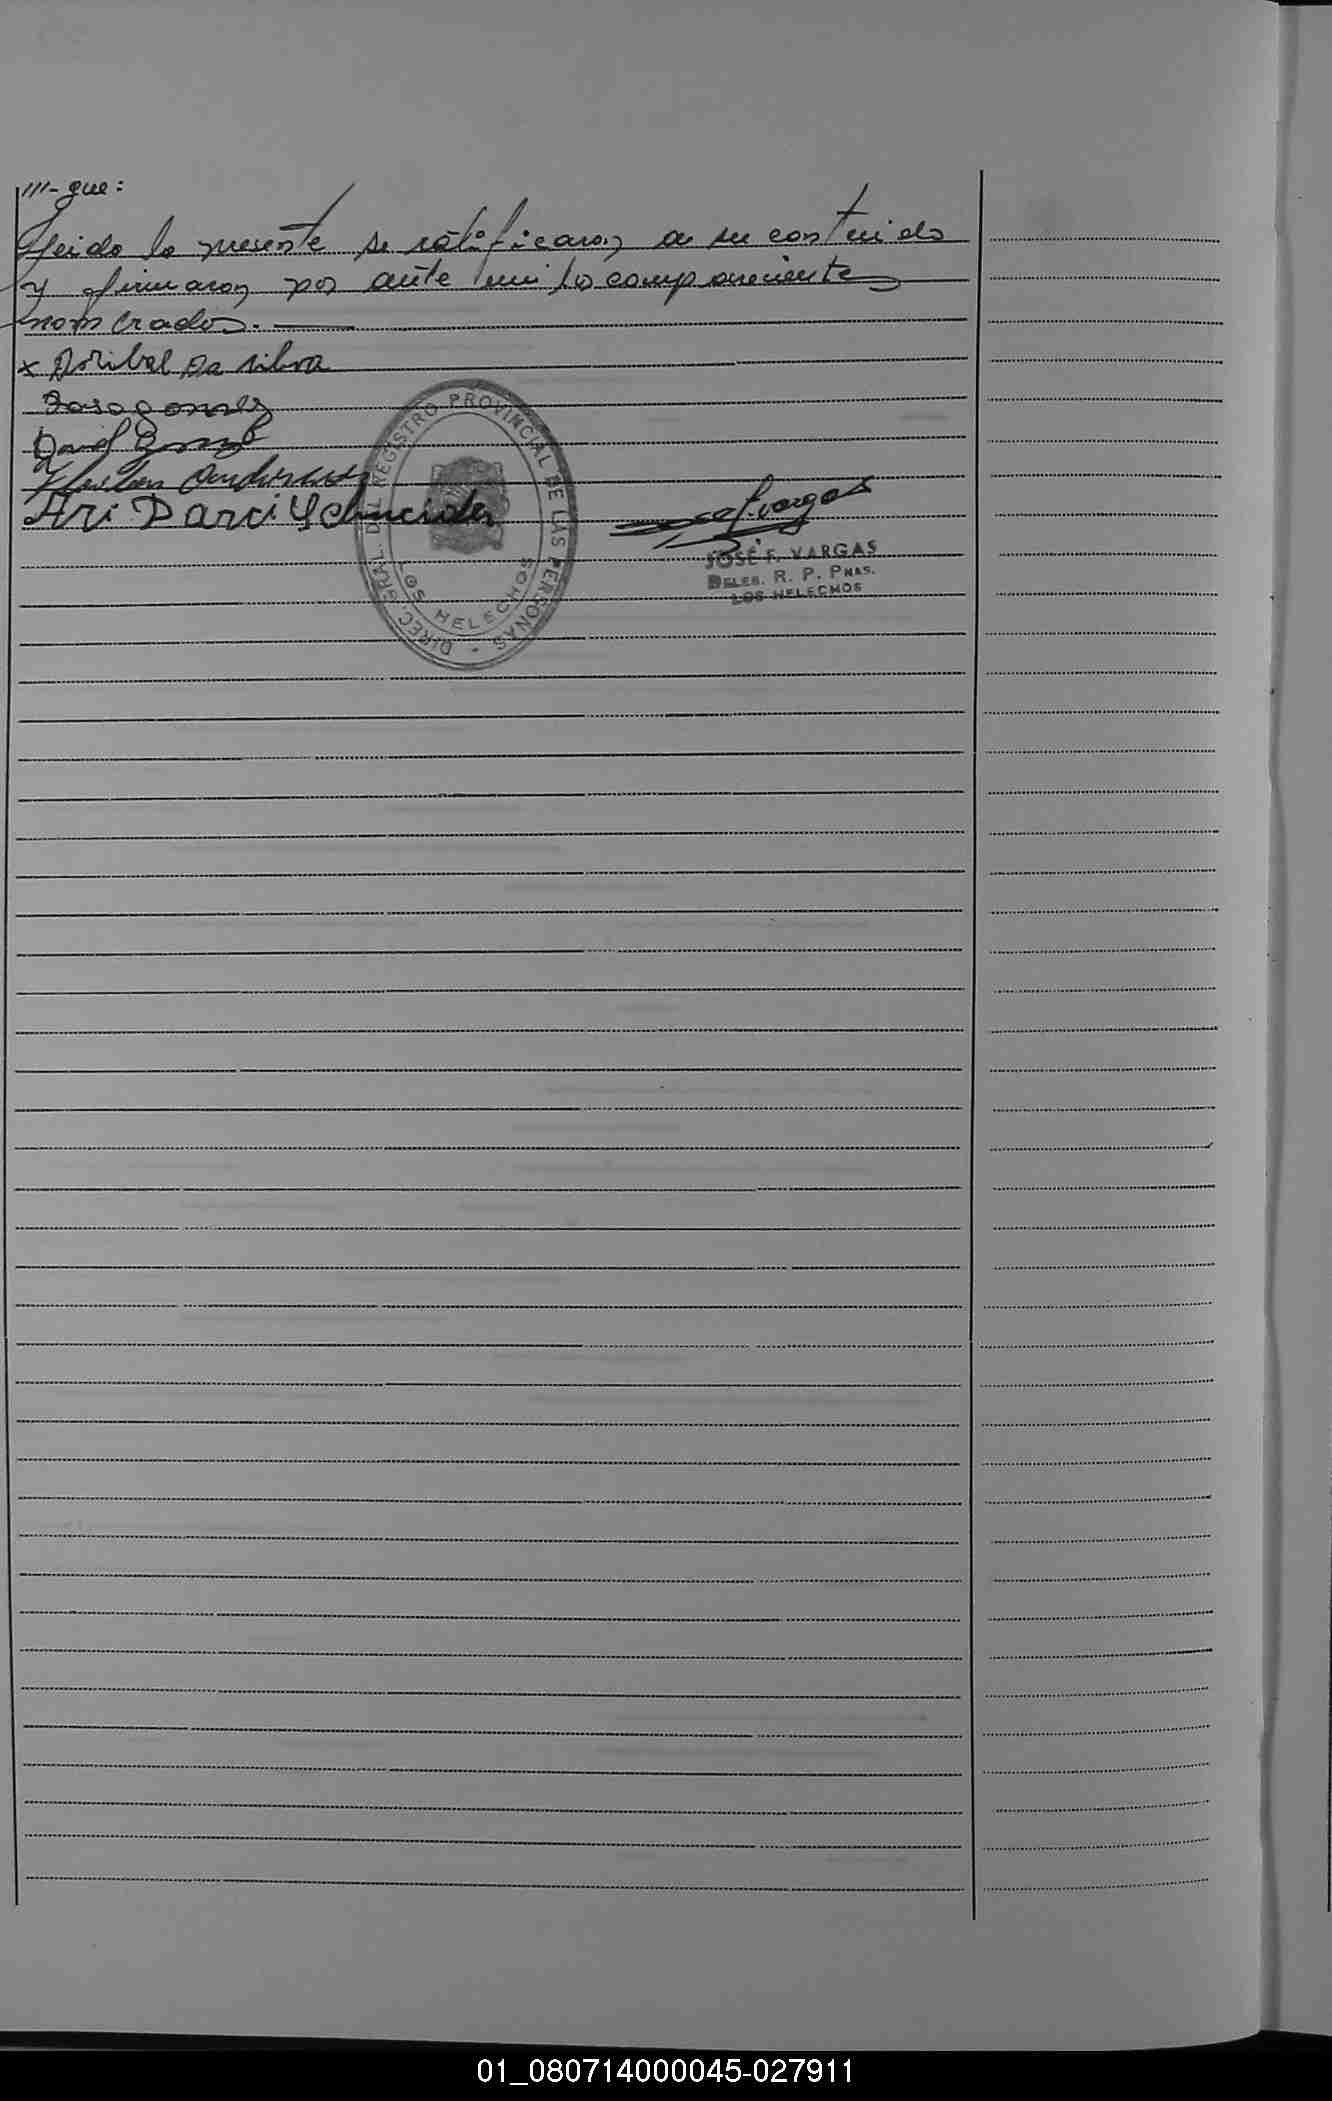 ///- que:
Leida la presente se ratificaron a su contenido
y firmaron por ante mi los comparecientes
nombrados.
x Doribal Da silva
Ari Darci Schneider
DIREC. GRAL. DEL REGISTRO PROVINCIAL DE LAS PERSONAS -
LOS HELECHOS
JOSÉ F. VARGAS
DELEG. R. P. PNAS.
LOS HELECHOS
01_080714000045-027911